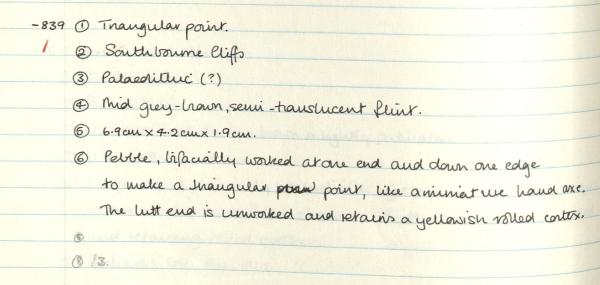 -839 ① Triangular point.
② Southbourne Cliffs
③ Palaeolithic (?)
④ Mid grey-brown, semi-translucent flint.
⑤ 6.9cm x 4.2cm x 1.9cm.
⑥ Pebble, bifacially worked at one end and down one edge
to make a triangular point, like a miniature hand axe.
The butt end is unworked and retains a yellowish rolled cortex.
⑧
⑨ 13.